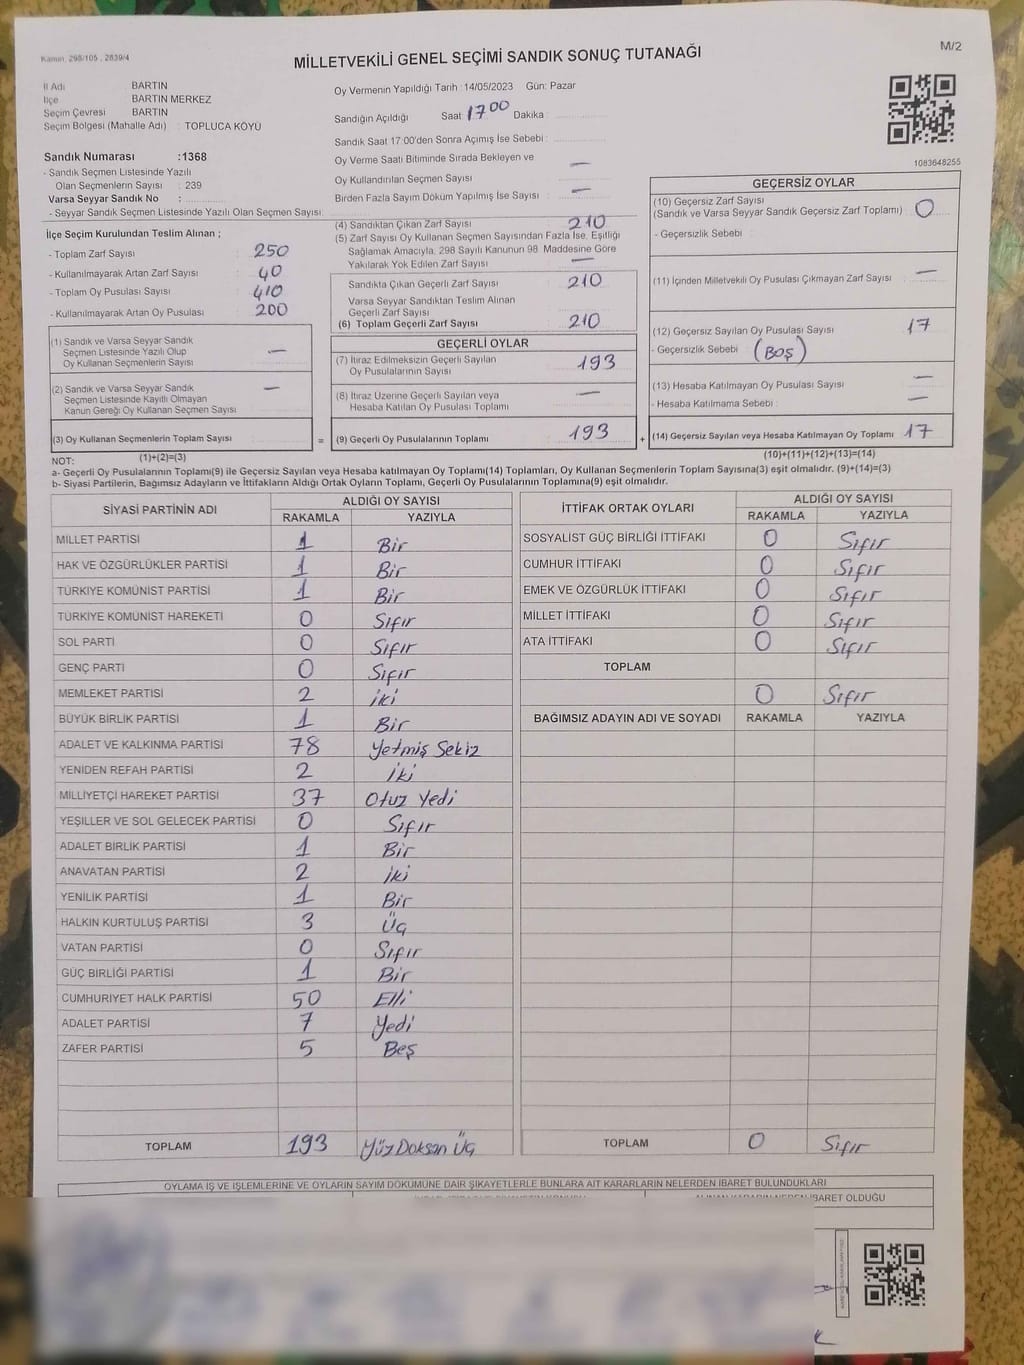 Kanun, 298/105, 2839/4
M/2
MİLLETVEKİLİ GENEL SEÇİMİ SANDIK SONUÇ TUTANAĞI
İl Adı BARTIN
İlçe BARTIN MERKEZ
Seçim Çevresi BARTIN
Seçim Bölgesi (Mahalle Adı) : TOPLUCA KÖYÜ
Sandık Numarası :1368
- Sandık Seçmen Listesinde Yazılı
Olan Seçmenlerin Sayısı : 239
Varsa Seyyar Sandık No :
- Seyyar Sandık Seçmen Listesinde Yazılı Olan Seçmen Sayısı:
İlçe Seçim Kurulundan Teslim Alınan ;
- Toplam Zarf Sayısı : 250
- Kullanılmayarak Artan Zarf Sayısı : 40
- Toplam Oy Pusulası Sayısı : 410
- Kullanılmayarak Artan Oy Pusulası : 200
(1) Sandık ve Varsa Seyyar Sandık
Seçmen Listesinde Yazılı Olup
Oy Kullanan Seçmenlerin Sayısı —
(2) Sandık ve Varsa Seyyar Sandık
Seçmen Listesinde Kayıtlı Olmayan
Kanun Gereği Oy Kullanan Seçmen Sayısı —
(3) Oy Kullanan Seçmenlerin Toplam Sayısı =
(1)+(2)=(3)
Oy Vermenin Yapıldığı Tarih :14/05/2023 Gün: Pazar
Sandığın Açıldığı Saat 17 00 Dakika :
Sandık Saat 17:00'den Sonra Açımış İse Sebebi :
Oy Verme Saati Bitiminde Sırada Bekleyen ve
Oy Kullandırılan Seçmen Sayısı : —
Birden Fazla Sayım Döküm Yapılmış İse Sayısı : —
(4) Sandıktan Çıkan Zarf Sayısı : 210
(5) Zarf Sayısı Oy Kullanan Seçmen Sayısından Fazla İse, Eşitliği
Sağlamak Amacıyla, 298 Sayılı Kanunun 98. Maddesine Göre
Yakılarak Yok Edilen Zarf Sayısı —
Sandıkta Çıkan Geçerli Zarf Sayısı : 210
Varsa Seyyar Sandıktan Teslim Alınan
Geçerli Zarf Sayısı :
(6) Toplam Geçerli Zarf Sayısı : 210
GEÇERLİ OYLAR
(7) İtiraz Edilmeksizin Geçerli Sayılan
Oy Pusulalarının Sayısı : 193
(8) İtiraz Üzerine Geçerli Sayılan veya
Hesaba Katılan Oy Pusulası Toplamı : —
(9) Geçerli Oy Pusulalarının Toplamı : 193 +
1083648255
GEÇERSİZ OYLAR
(10) Geçersiz Zarf Sayısı
(Sandık ve Varsa Seyyar Sandık Geçersiz Zarf Toplamı) : 0
- Geçersizlik Sebebi :
(11) İçinden Milletvekili Oy Pusulası Çıkmayan Zarf Sayısı : —
(12) Geçersiz Sayılan Oy Pusulası Sayısı 17
- Geçersizlik Sebebi (BOŞ)
(13) Hesaba Katılmayan Oy Pusulası Sayısı —
- Hesaba Katılmama Sebebi : —
(14) Geçersiz Sayılan veya Hesaba Katılmayan Oy Toplamı 17
(10)+(11)+(12)+(13)=(14)
NOT:
a- Geçerli Oy Pusulalarının Toplamı(9) ile Geçersiz Sayılan veya Hesaba katılmayan Oy Toplamı(14) Toplamları, Oy Kullanan Seçmenlerin Toplam Sayısına(3) eşit olmalıdır. (9)+(14)=(3)
b- Siyasi Partilerin, Bağımsız Adayların ve İttifakların Aldığı Ortak Oyların Toplamı, Geçerli Oy Pusulalarının Toplamına(9) eşit olmalıdır.
SİYASİ PARTİNİN ADI ALDIĞI OY SAYISI
RAKAMLA YAZIYLA
MİLLET PARTİSİ 1 Bir
HAK VE ÖZGÜRLÜKLER PARTİSİ 1 Bir
TÜRKİYE KOMÜNİST PARTİSİ 1 Bir
TÜRKİYE KOMÜNİST HAREKETİ 0 Sıfır
SOL PARTİ 0 Sıfır
GENÇ PARTİ 0 Sıfır
MEMLEKET PARTİSİ 2 iki
BÜYÜK BİRLİK PARTİSİ 1 Bir
ADALET VE KALKINMA PARTİSİ 78 Yetmiş Sekiz
YENİDEN REFAH PARTİSİ 2 İki
MİLLİYETÇİ HAREKET PARTİSİ 37 Otuz Yedi
YEŞİLLER VE SOL GELECEK PARTİSİ 0 Sıfır
ADALET BİRLİK PARTİSİ 1 Bir
ANAVATAN PARTİSİ 2 iki
YENİLİK PARTİSİ 1 Bir
HALKIN KURTULUŞ PARTİSİ 3 Üç
VATAN PARTİSİ 0 Sıfır
GÜÇ BİRLİĞİ PARTİSİ 1 Bir
CUMHURİYET HALK PARTİSİ 50 Elli
ADALET PARTİSİ 7 Yedi
ZAFER PARTİSİ 5 Beş
TOPLAM 193 Yüz Doksan Üç
İTTİFAK ORTAK OYLARI ALDIĞI OY SAYISI
RAKAMLA YAZIYLA
SOSYALİST GÜÇ BİRLİĞİ İTTİFAKI 0 Sıfır
CUMHUR İTTİFAKI 0 Sıfır
EMEK VE ÖZGÜRLÜK İTTİFAKI 0 Sıfır
MİLLET İTTİFAKI 0 Sıfır
ATA İTTİFAKI 0 Sıfır
TOPLAM
0 Sıfır
BAĞIMSIZ ADAYIN ADI VE SOYADI RAKAMLA YAZIYLA
TOPLAM 0 Sıfır
OYLAMA İŞ VE İŞLEMLERİNE VE OYLARIN SAYIM DÖKÜMÜNE DAİR ŞİKAYETLERLE BUNLARA AİT KARARLARIN NELERDEN İBARET BULUNDUKLARI
İBARET OLDUĞU